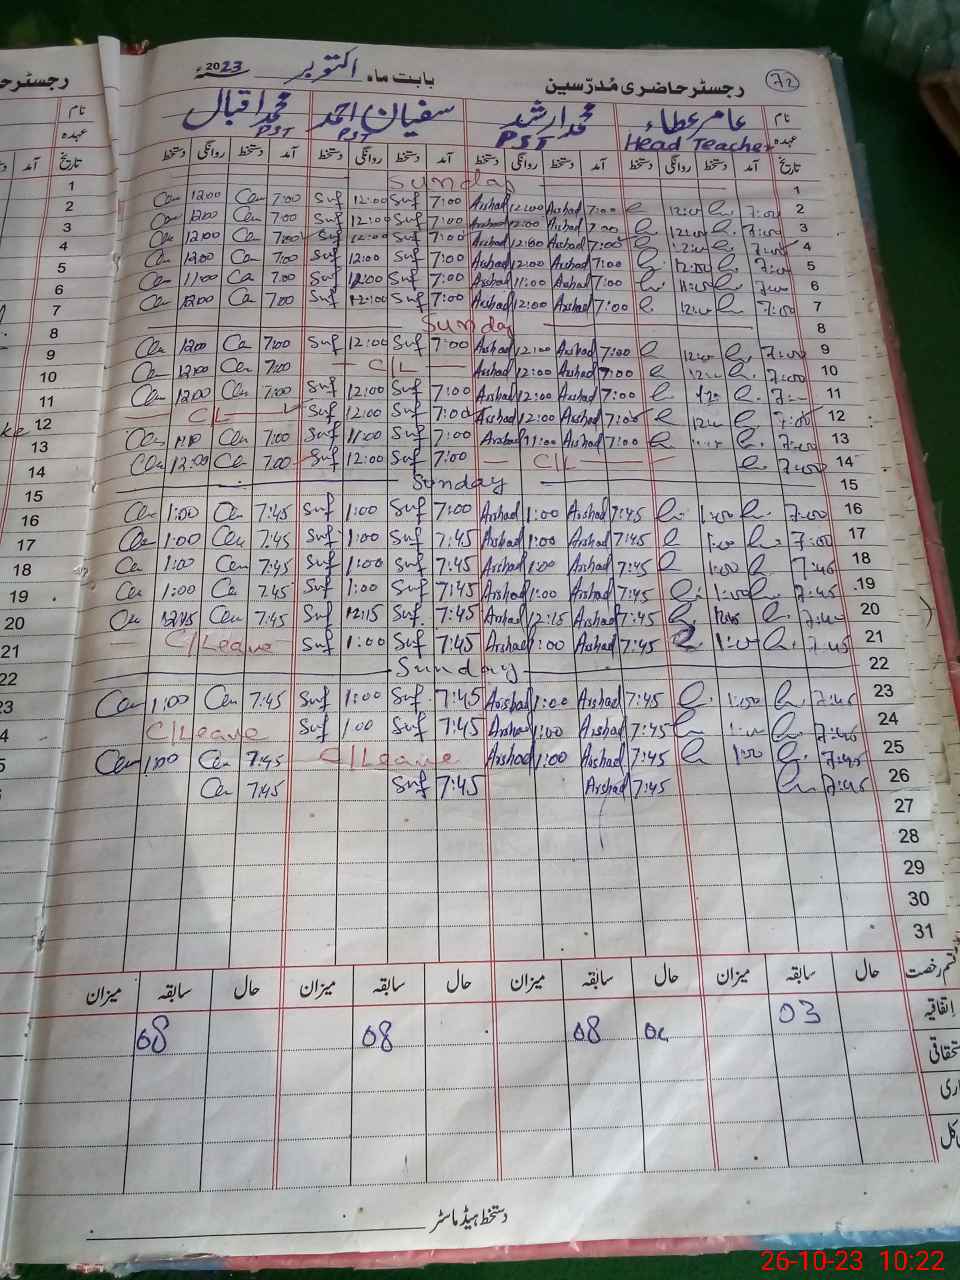 رجسٹر حاضری مُدرّسین بابت ماہ اکتوبر 2023ء 72
نام عامر عطاء محمد ارشد سفیان احمد محمد اقبال
عہدہ Head Teacher PST PST PST
تاریخ آمد دستخط روانگی دستخط آمد دستخط روانگی دستخط آمد دستخط روانگی دستخط آمد دستخط روانگی دستخط
1 Sunday 1
2 12:00 7:00 Suf 12:00 Suf 7:00 Arshad 12:00 Arshad 7:00 7:00 2
3 12:00 7:00 Suf 12:00 Suf 7:00 Arshad 12:00 Arshad 7:00 7:00 3
4 12:00 7:00 Suf 12:00 Suf 7:00 Arshad 12:00 Arshad 7:00 7:00 4
5 12:00 7:00 Suf 12:00 Suf 7:00 Arshad 12:00 Arshad 7:00 7:00 5
6 11:00 7:00 Suf Suf 7:00 Arshad 11:00 Arshad 7:00 7:00 6
7 12:00 7:00 Suf 12:00 Suf 7:00 Arshad 12:00 Arshad 7:00 7:00 7
8 Sunday 8
9 12:00 7:00 Suf 12:00 Suf 7:00 Arshad 12:00 Arshad 7:00 7:00 9
10 12:00 7:00 C/L Arshad 12:00 Arshad 7:00 7:00 10
11 12:00 7:00 Suf 12:00 Suf 7:00 Arshad 12:00 Arshad 7:00 11
12 C/L Suf 12:00 Suf 7:00 Arshad 12:00 Arshad 7:00 7:00 12
13 7:00 Suf 11:00 Suf 7:00 Arshad 11:00 Arshad 7:00 7:00 13
14 12:00 7:00 Suf 12:00 Suf 7:00 C/L 7:00 14
15 Sunday 15
16 1:00 7:45 Suf 1:00 Suf 7:00 Arshad 1:00 Arshad 7:45 1:00 7:00 16
17 1:00 7:45 Suf 1:00 Suf 7:45 Arshad 1:00 Arshad 7:45 1:00 7:00 17
18 1:00 7:45 Suf 1:00 Suf 7:45 Arshad 1:00 Arshad 7:45 1:00 7:45 18
19 1:00 7:45 Suf 1:00 Suf 7:45 Arshad 1:00 Arshad 7:45 1:00 7:45 19
20 12:15 7:45 Suf 12:15 Suf 7:45 Arshad 12:15 Arshad 7:45 7:45 20
21 C/Leave Suf 1:00 Suf 7:45 Arshad 1:00 Arshad 7:45 1:00 7:45 21
22 Sunday 22
23 1:00 7:45 Suf 1:00 Suf 7:45 Arshad 1:00 Arshad 7:45 1:00 7:45 23
C/Leave Suf 1:00 Suf 7:45 Arshad 1:00 Arshad 7:45 7:45 24
1:00 7:45 C/Leave Arshad 1:00 Arshad 7:45 1:00 7:45 25
7:45 Suf 7:45 Arshad 7:45 7:45 26
27
28
29
30
31
قسم رخصت حال سابقہ میزان حال سابقہ میزان حال سابقہ میزان حال سابقہ میزان
اتفاقیہ 03 08 08 08
دستخط ہیڈ ماسٹر
26-10-23 10:22